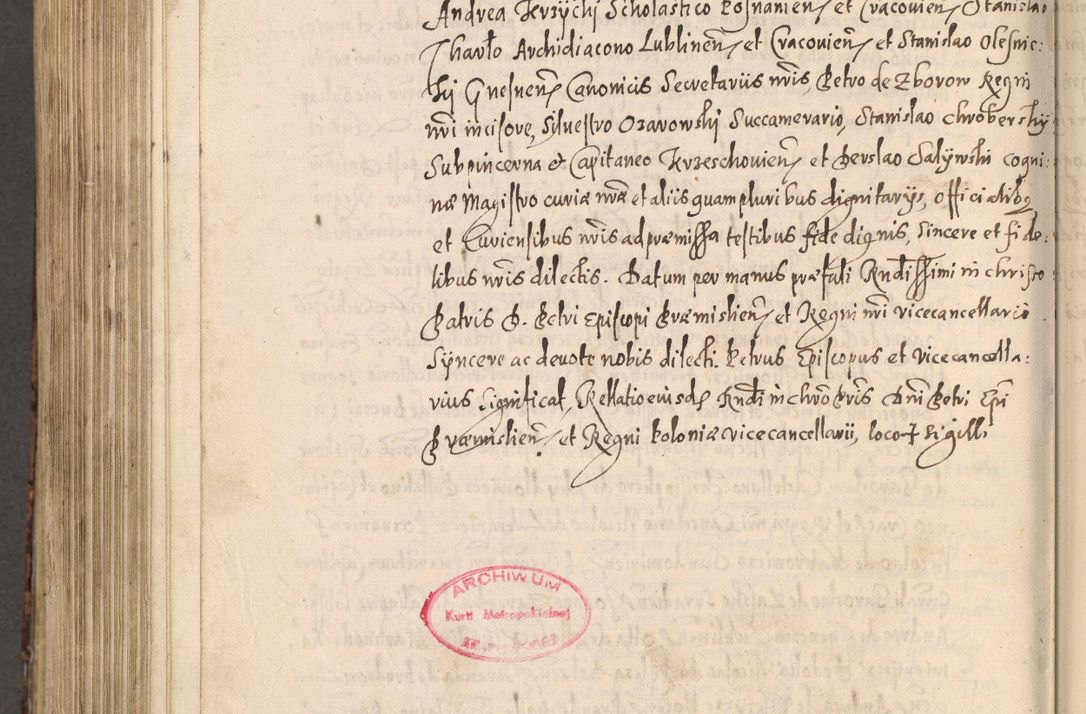 Andrea Krzÿcki Scholastico Posnanien et Cracovien Stanislao
Tharło Archidiacono Lublinen et Cracovien et Stanislao Olesnic:
kij Gnesnen Canonicis Secretariis nris, Petro de Zborow Regni
nri incisore, Siluestro Ozarowski Succamerario, Stanislao Chroberskÿ
Subpincerna et Capitaneo Krzeschovien et Perslao Salÿnski cogni:
næ Magistro curiæ nræ et aliis quampluribus dignitarijs, Officialibq
et Curiensibus nris ad præmissa testibus fide dignis, sincere et fide:
libus nris dilectis. Datum per manus præfati Rndissimi in christo
Patris D. Petri Episcopi Præmislien et Regni nri vicecancellario
Sÿncere ac devote nobis dilecti. Petrus Episcopus et vicecancella:
rius significat, Rellatio eiusd Rndi in chro Pris Dni Petri Epi
Præmislien et Regni Poloniæ vicecancellarii, loco + sigilli
ARCHIWUM
Kurii Metropolitalnej